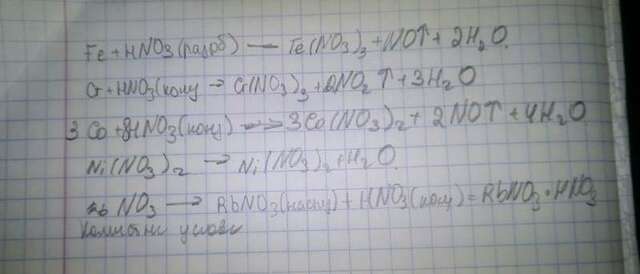 Fe + HNO3 (разб) — Fe(NO3)3 + NO↑ + 2H2O.
Cr + HNO3 (конц → Cr(NO3)3 + NO2↑ + 3H2O
3 Co + 8HNO3 (конц) → 3Co(NO3)2 + 2NO↑ + 4H2O
Ni(NO3)2 → Ni(NO3)2 + H2O
NO3 → RbNO3 + HNO3 (конц) = RbNO3 · HNO3